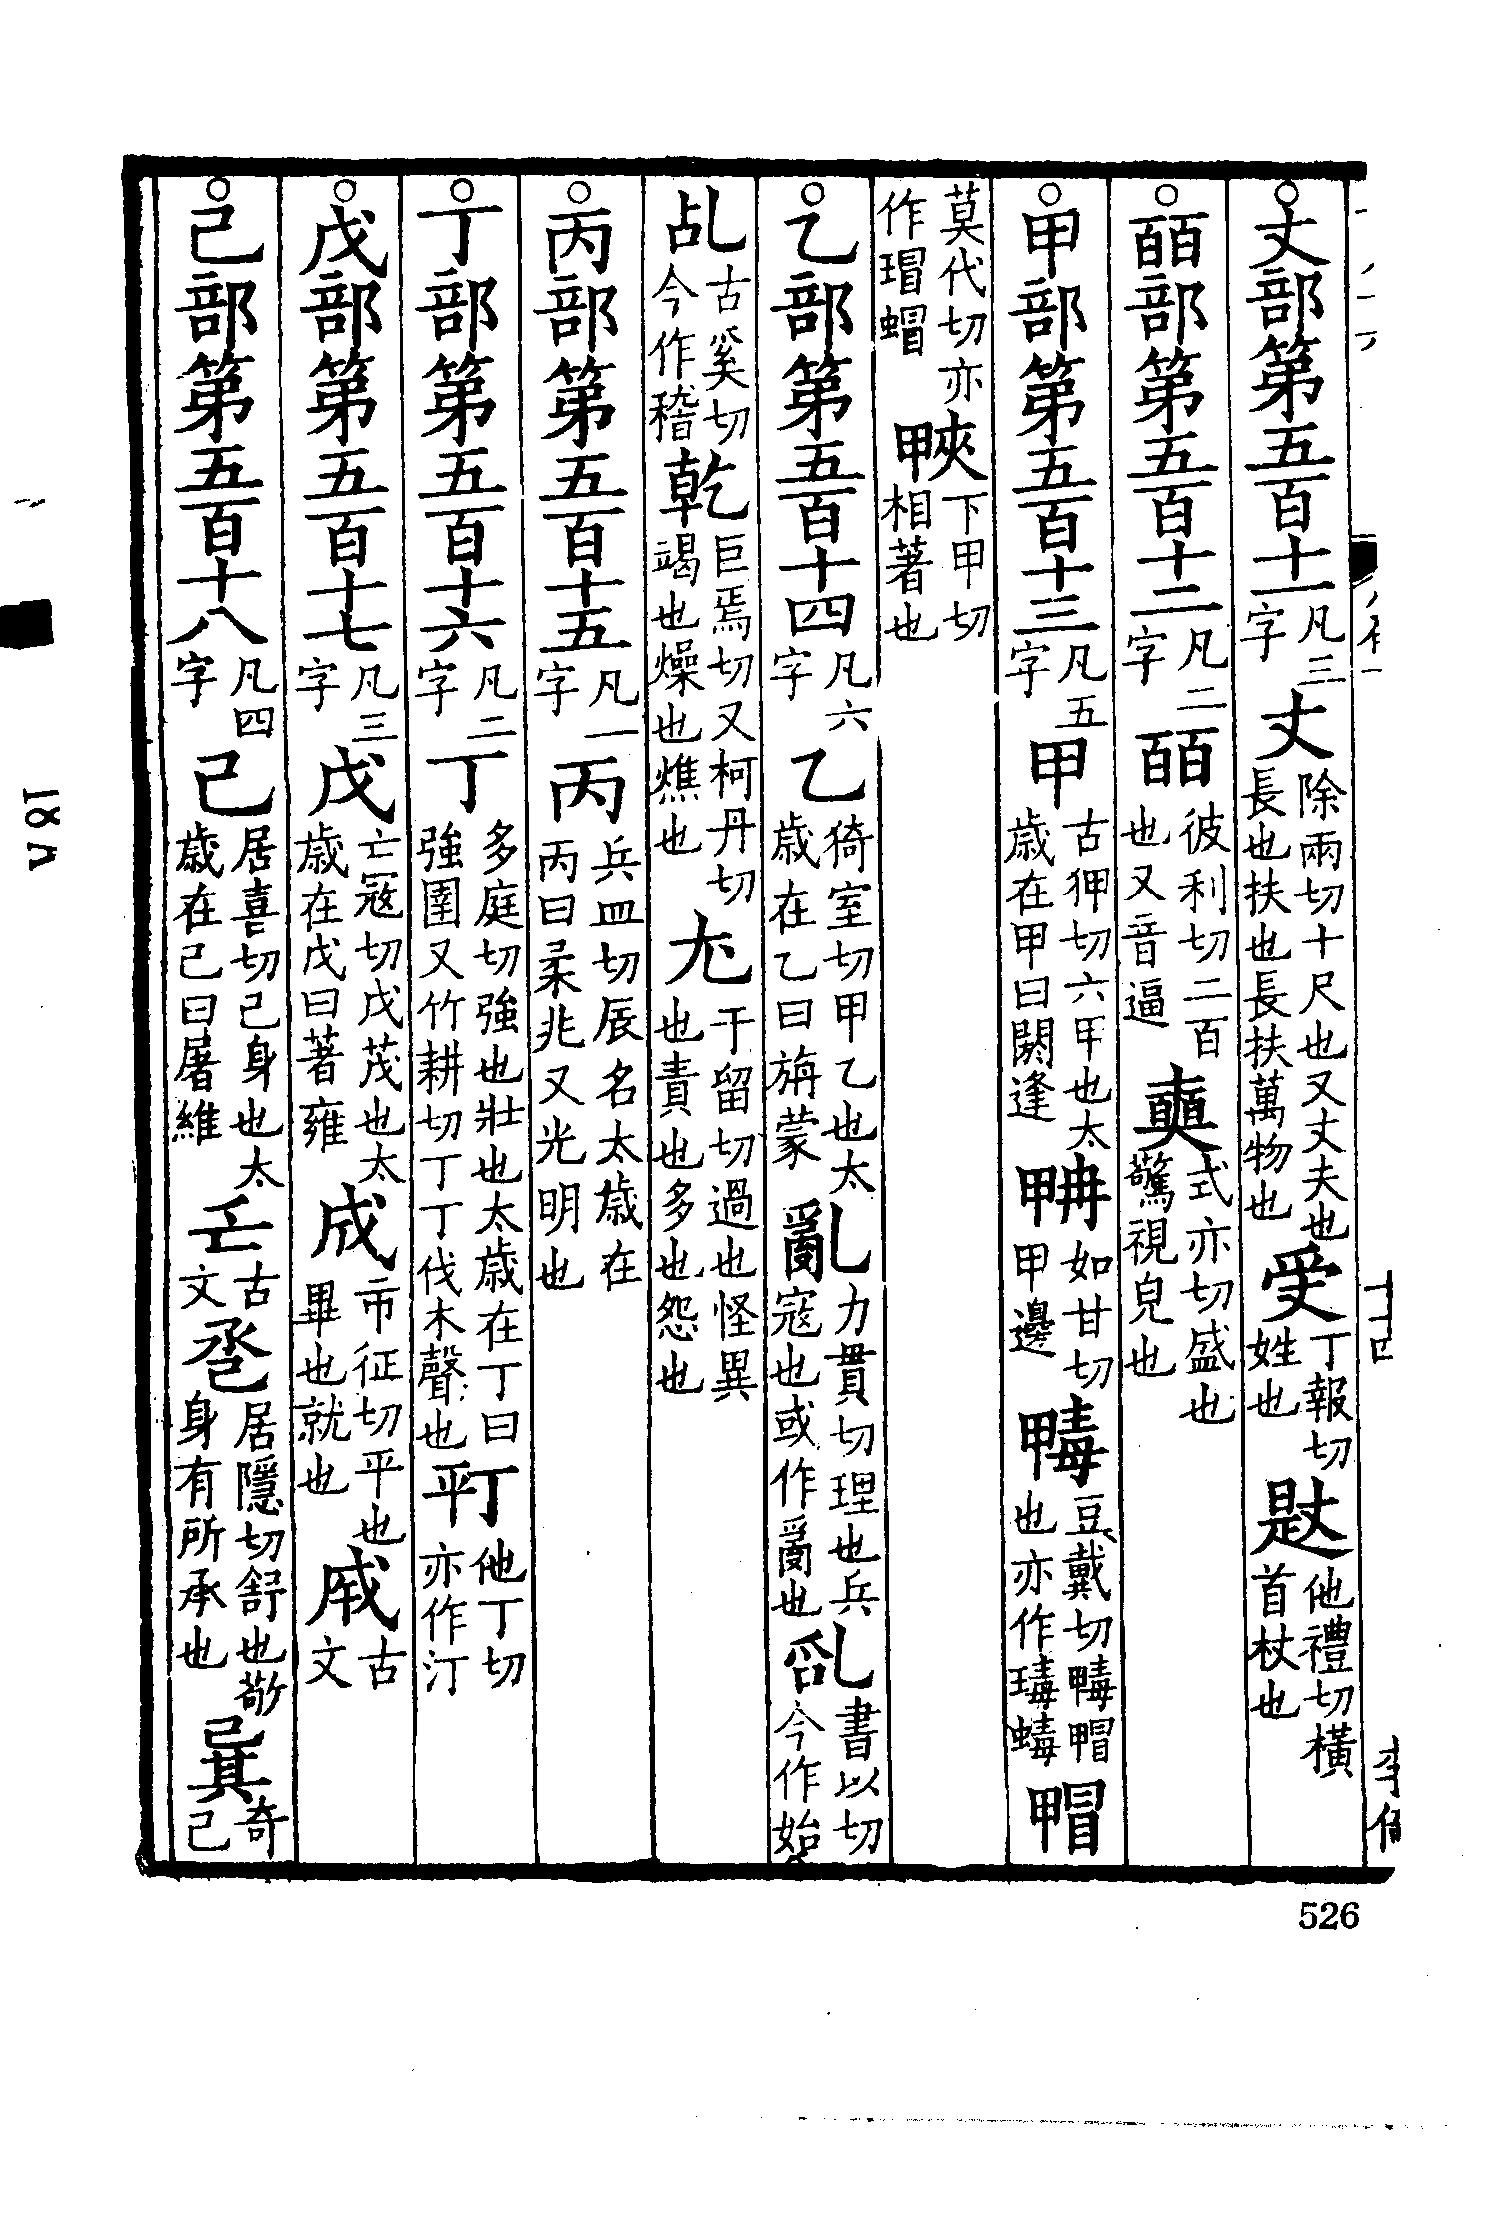 ○丈部第五百十一凡三字丈除兩切十尺也又丈夫也長也扶也長扶萬物也丁報切姓也他禮切橫首杖也
○皕部第五百十二凡二字皕彼利切二百也又音逼奭式亦切盛也驚視皃也
○甲部第五百十三凡五字甲古狎切六甲也太歲在甲曰閼逢如甘切甲邊豆戴切也亦作
莫代切亦作瑁蝐下甲切相著也
○乙部第五百十四凡六字乙猗室切甲乙也太歲在乙曰旃蒙亂力貫切理也兵寇也或作𤔔也書以切今作始
乩古奚切今作稽乾巨焉切又柯丹切竭也燥也燋也尤于留切過也怪異也責也多也怨也
○丙部第五百十五凡一字丙兵皿切辰名太歲在丙曰柔兆又光明也
○丁部第五百十六凡二字丁多庭切強也壯也太歲在丁曰強圉又竹耕切丁丁伐木聲也他丁切亦作汀
○戊部第五百十七凡三字戊亡寇切戊茂也太歲在戊曰著雍成市征切平也畢也就也古文
○己部第五百十八凡四字己居喜切己身也太歲在己曰屠維古文巹居隱切舒也敬身有所承也㠱奇己
526